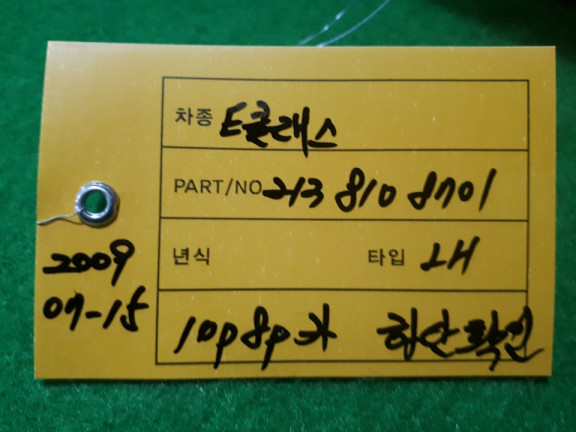 차종 E클래스
PART/NO 213 810 8701
년식 타입 LH
2009
07-15
10p 8p 카 확인